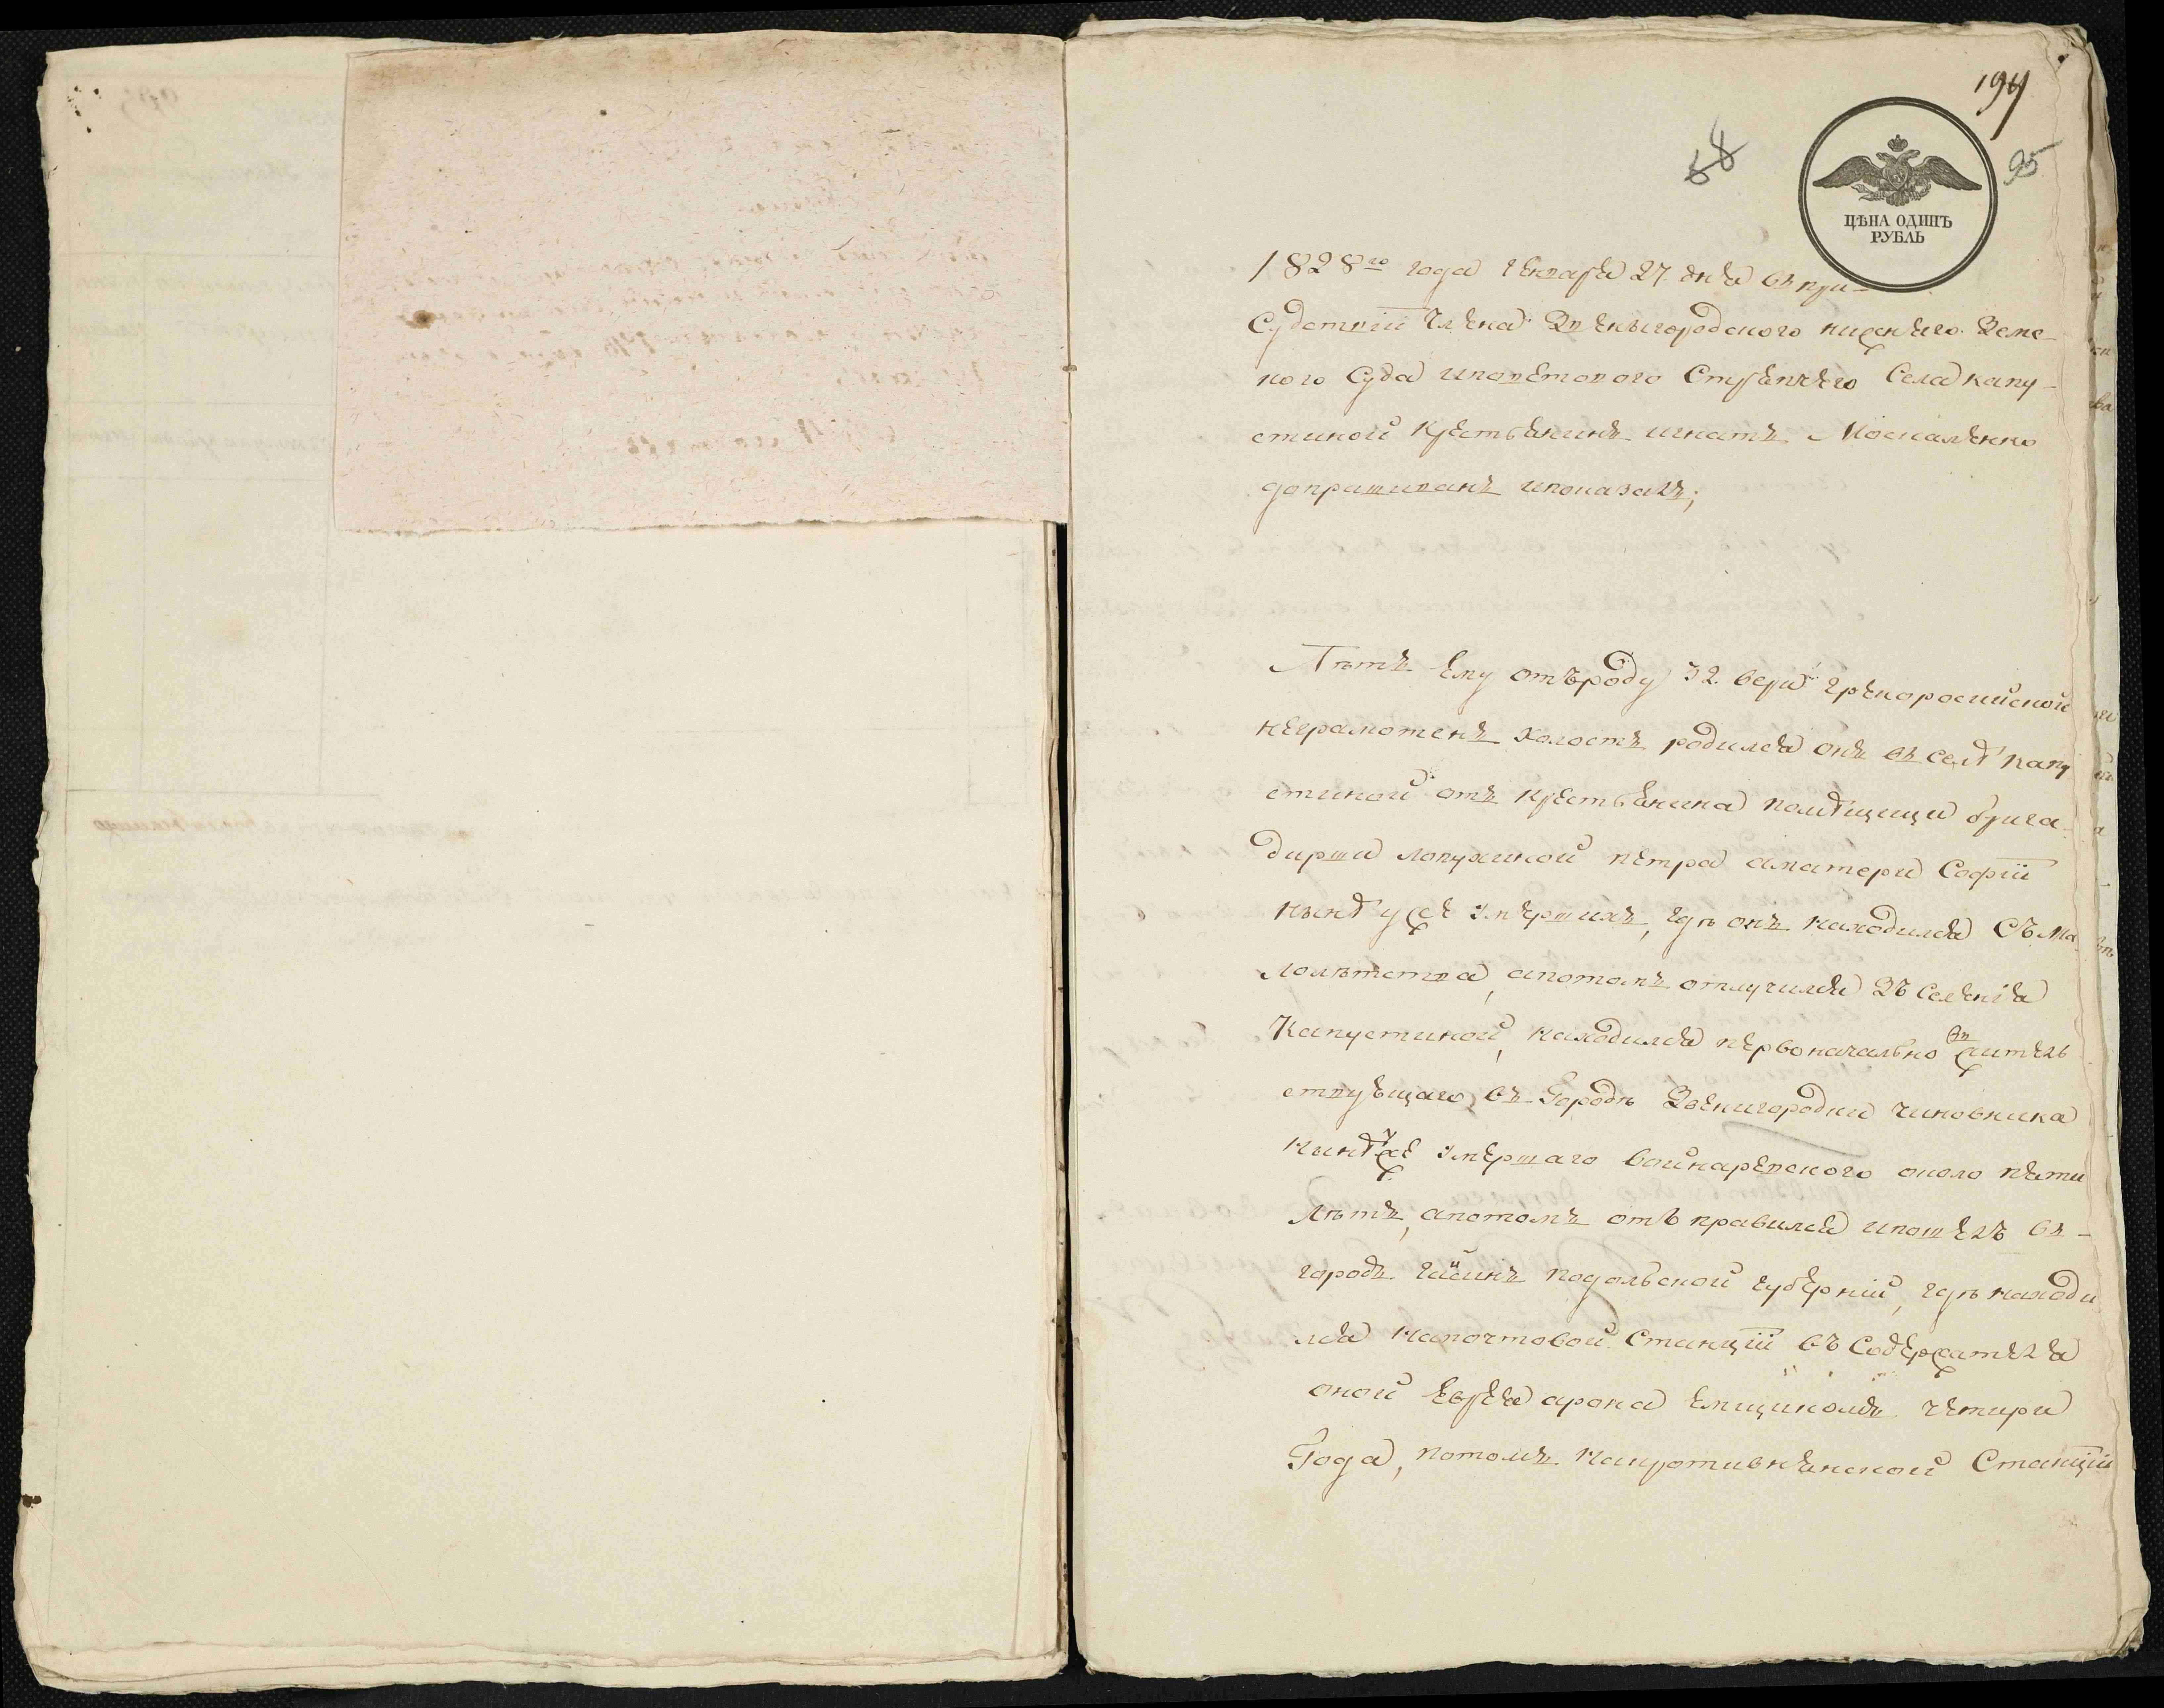 194
58
95
ЦѢНА ОДИНЪ
РУБЛЬ
1828го года Генваря 27. дня въ при-
Судствіи Члена Звенигородского нижнѣго Земс-
кого Суда иповетового Стряпчего Села капу-
стиной крестьянинъ игнатъ Москаленко
допрашиванъ ипоказалъ;
Лѣтъ ему отъроду 32. веры грекоросийской
неграмотенъ холостъ родился онъ въ селѣ капу
стиной отъ крестьянина помѣщицы брига-
дирши лопухиной петра аматери Софіи
нынѣ уже умершихъ, гдѣ онъ находился Съ Ма-
лолѣтства, апотомъ отлучился зъ селенія
Капустиной, находился первоначально жител
ствуещаго въ Городѣ Звенигородки чиновника
нынѣ уже умершаго войнаревского около пяти
лѣтъ, апотомъ отъправился ипошелъ въ-
городъ гайсинъ подольской губерніи, гдѣ находи
лся напочтовой Станціи въ Содержателя
оной еврея арона емщикомъ четири
Года, потомъ Станціи